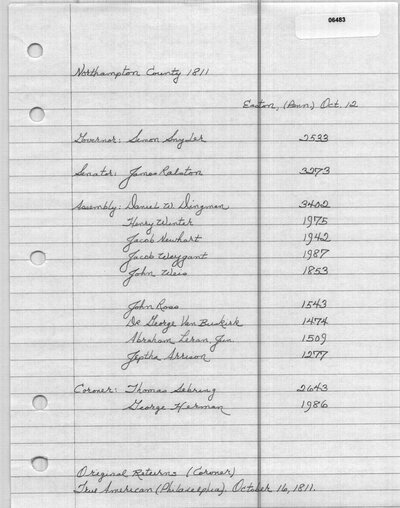 06483
Northampton County 1811
Easton, (Penn.) Oct. 12
Governor: Simon Snyder 2533
Senator: James Ralston 3273
Assembly: Daniel W. Dingman 3402
Henry Winter 1975
Jacob Newhart 1942
Jacob Weygant 1987
John Weis 1853
John Ross 1543
Dr George Van Buskirk 1474
Abraham Levan Jun. 1509
Jeptha Arrison 1277
Coroner: Thomas Sebring 2643
George Herman 1986
Original Returns (Coroner)
True American (Philadelphia). October 16, 1811.